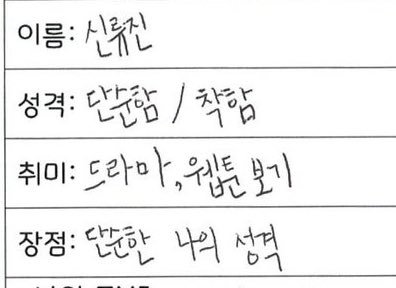 이름: 신류진
성격: 단순함 / 착함
취미: 드라마, 웹툰 보기
장점: 단순한 나의 성격